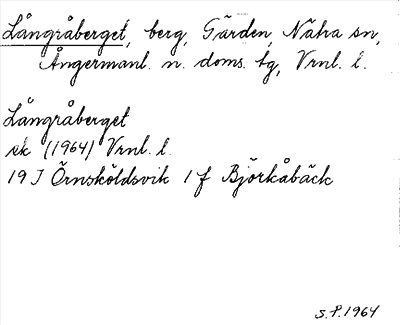 Långråberget, berg, Gärden, Nätra sn,
Ångermanl. n. doms. tg, Vrnl. l.
Långråberget
ek (1964) Vrnl. l.
19 J Örnsköldsvik 1 f Björkåbäck
S.P. 1964